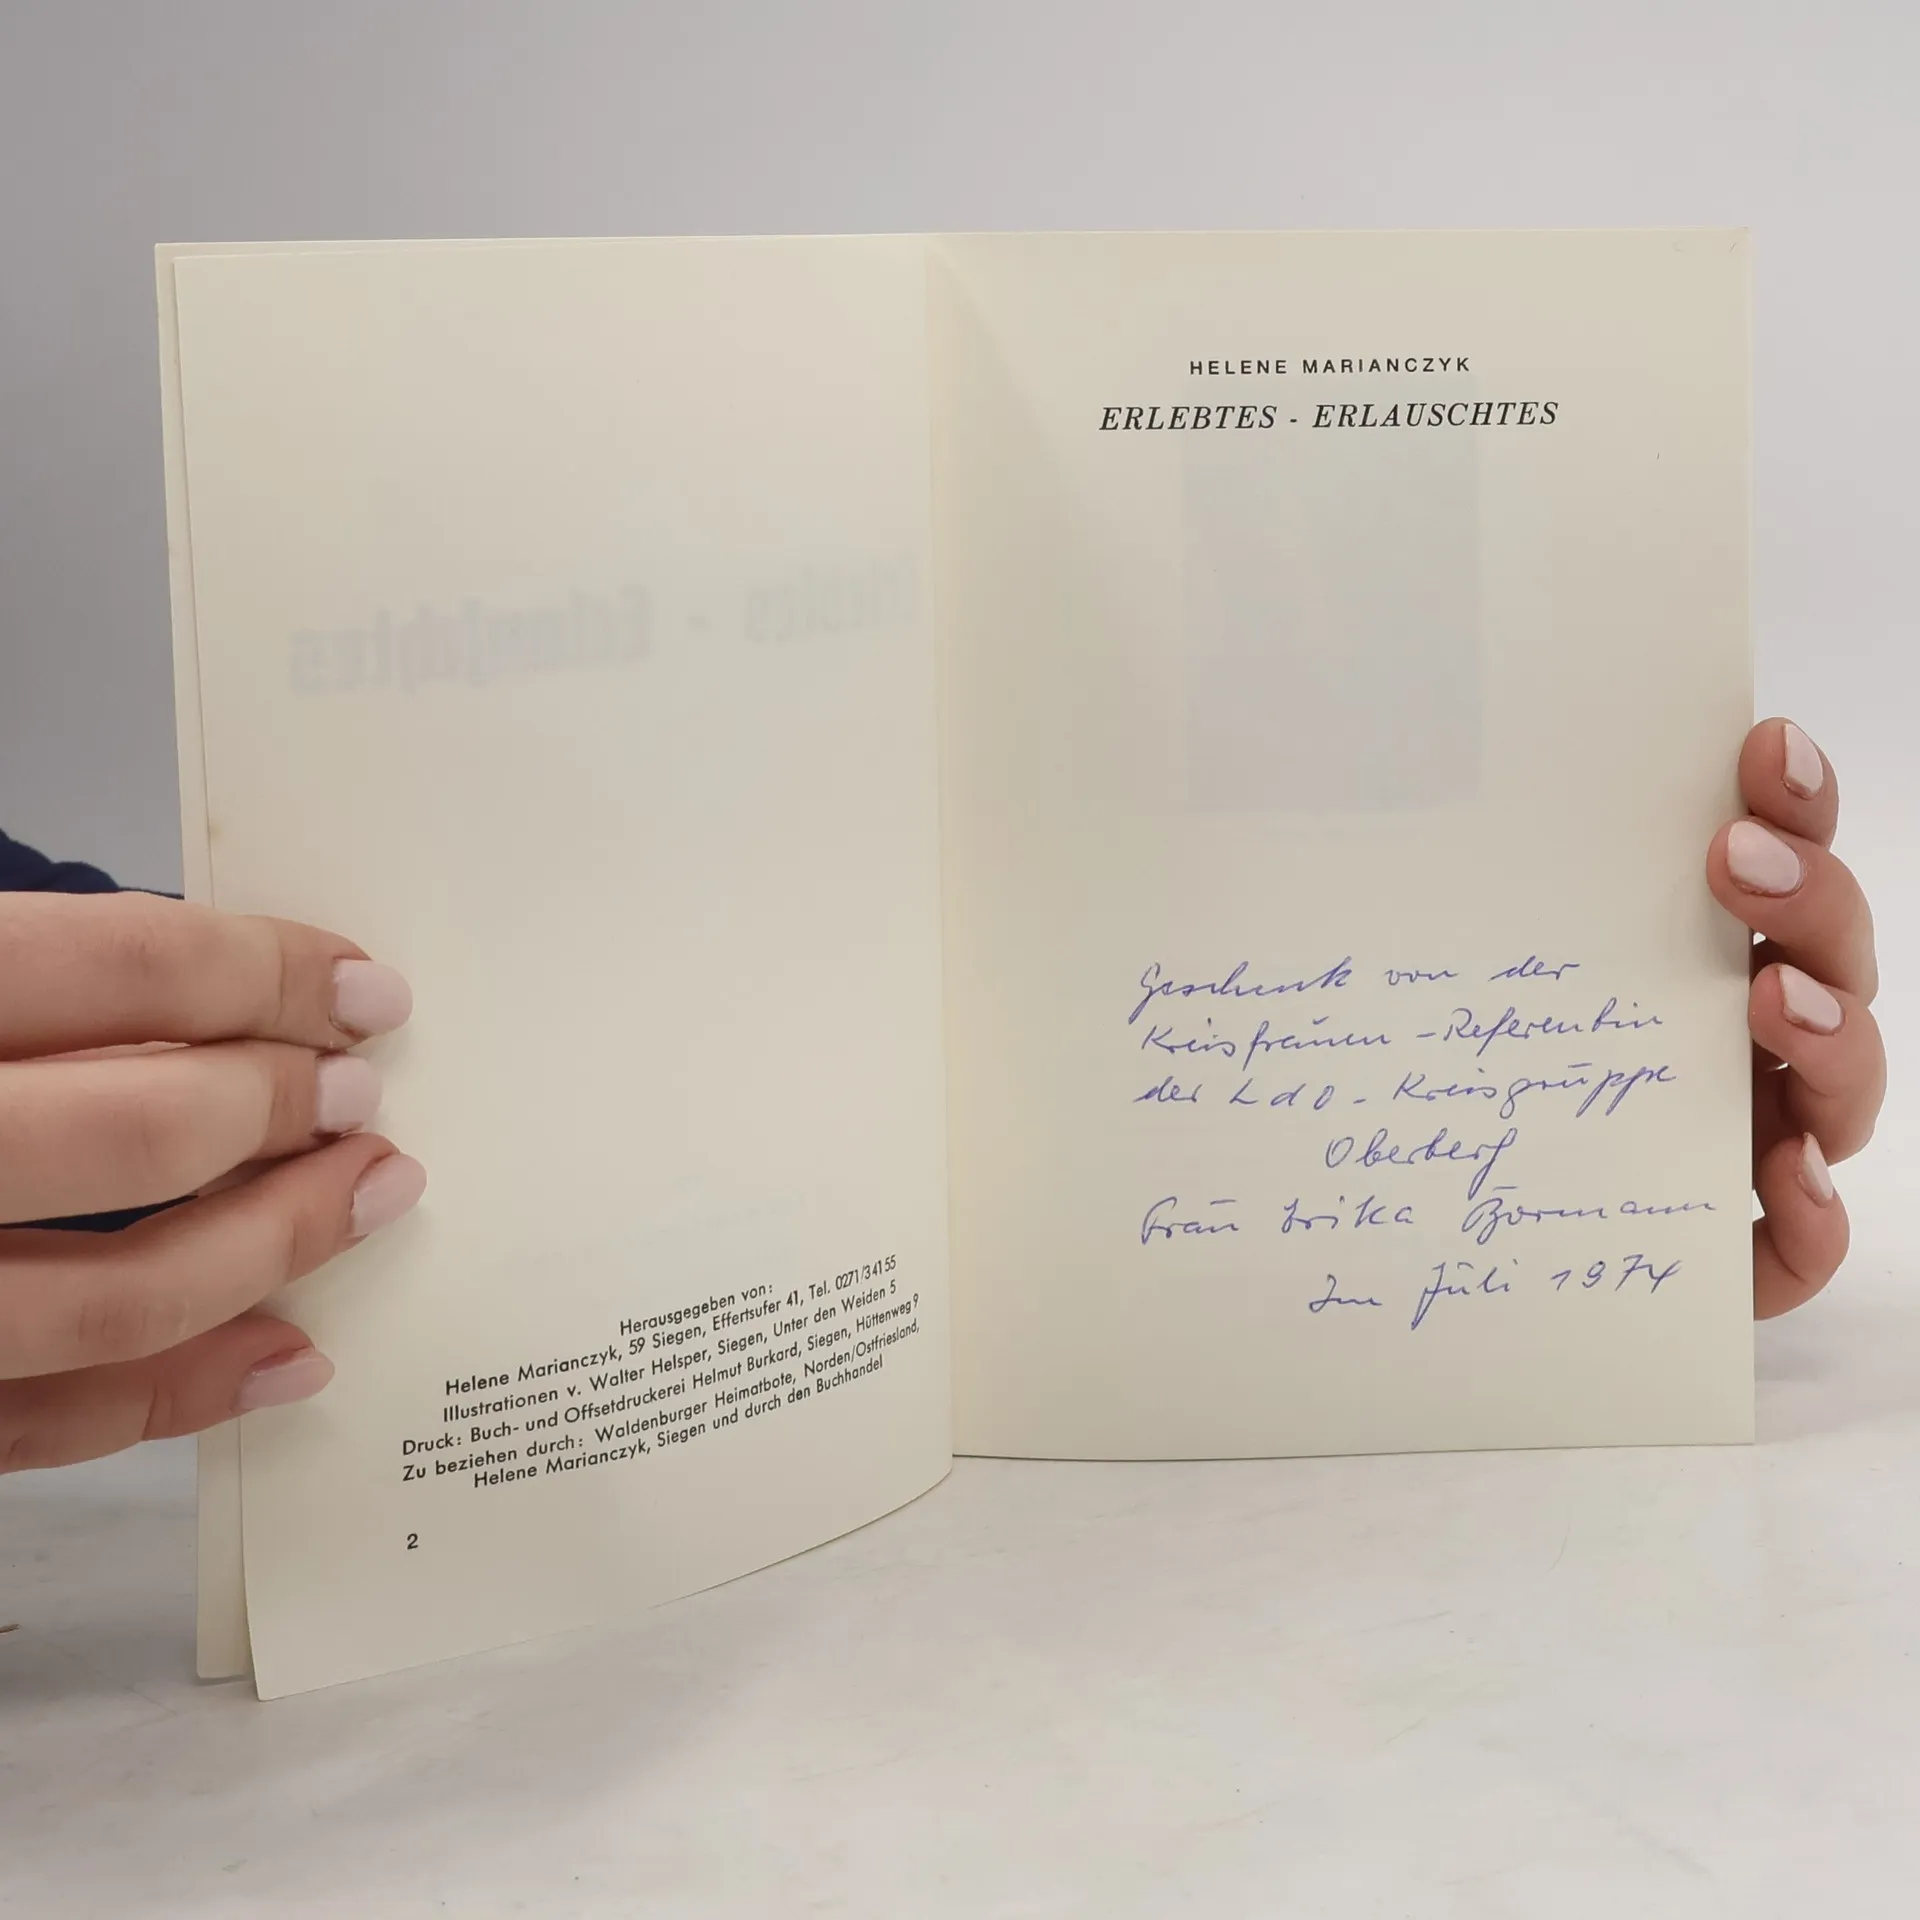 Herausgegeben von:
Helene Marianczyk, 59 Siegen, Effertsufer 41, Tel. 0271/34155
Illustrationen v. Walter Helsper, Siegen, Unter den Weiden 5
Druck: Buch- und Offsetdruckerei Helmut Burkard, Siegen, Hüttenweg 9
Zu beziehen durch: Waldenburger Heimatbote, Norden/Ostfriesland,
Helene Marianczyk, Siegen und durch den Buchhandel
2
HELENE MARIANCZYK
ERLEBTES - ERLAUSCHTES
Geschenk von der
Kreisfrauen - Referentin
der LdO - Kreisgruppe
Oberberg
Frau Erika Bormann
Im Juli 1974